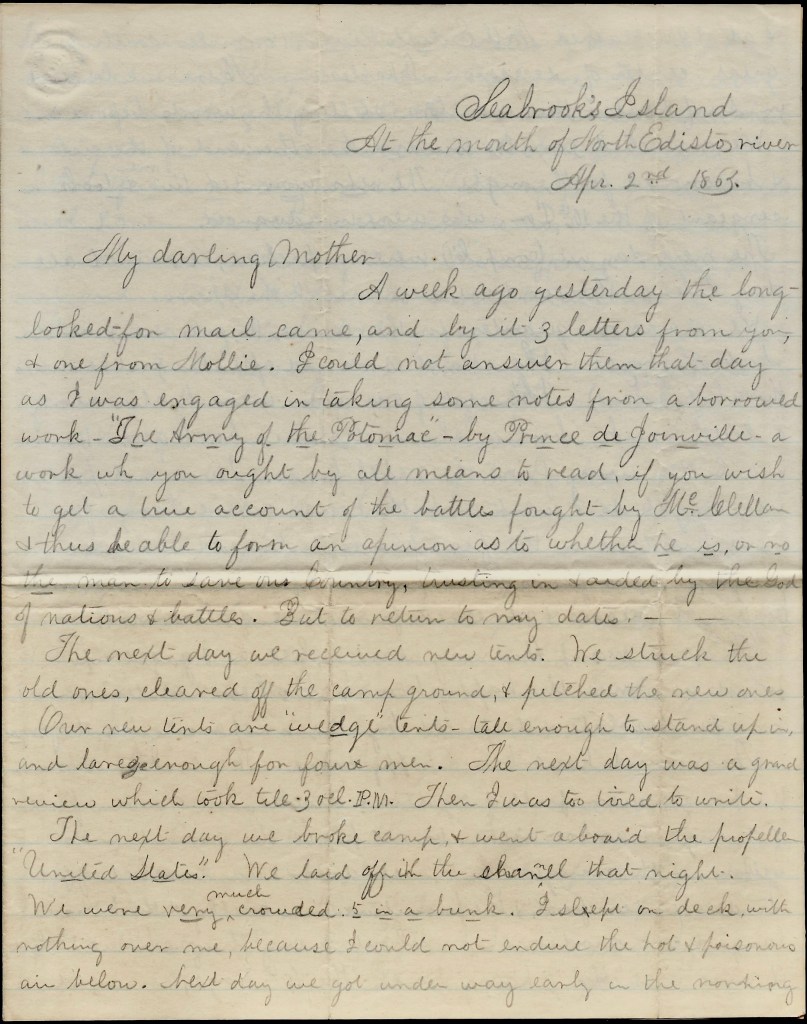 Seabrook's Island
At the mouth of North Edisto river
Apr. 2nd 1863.
My darling Mother
A week ago yesterday the long-
looked-for mail came, and by it 3 letters from you,
& one from Mollie. I could not answer them that day
as I was engaged in taking some notes from a borrowed
work - "The Army of the Potomac" - by Prince de Joinville - a
work wh you ought by all means to read, if you wish
to get a true account of the battles fought by McClellan
& thus be able to form an opinion as to whether he is, or no
the man to save our Country, trusting in & aided by the God
of nations & battles. But to return to my dates. — —
The next day we received new tents. We struck the
old ones, cleared off the camp ground, & pitched the new ones
Our new tents are "wedge" tents - tall enough to stand up in,
and large enough for four men. The next day was a grand
review which took till 3 ocl. P.M. Then I was too tired to write.
The next day we broke camp, & went a board the propeller
"United States". We laid off in the channel that night.
We were very much crowded. 5 in a bunk. I slept on deck, with
nothing over me, because I could not endure the hot & poisonous
air below. Next day we got under way early in the morning